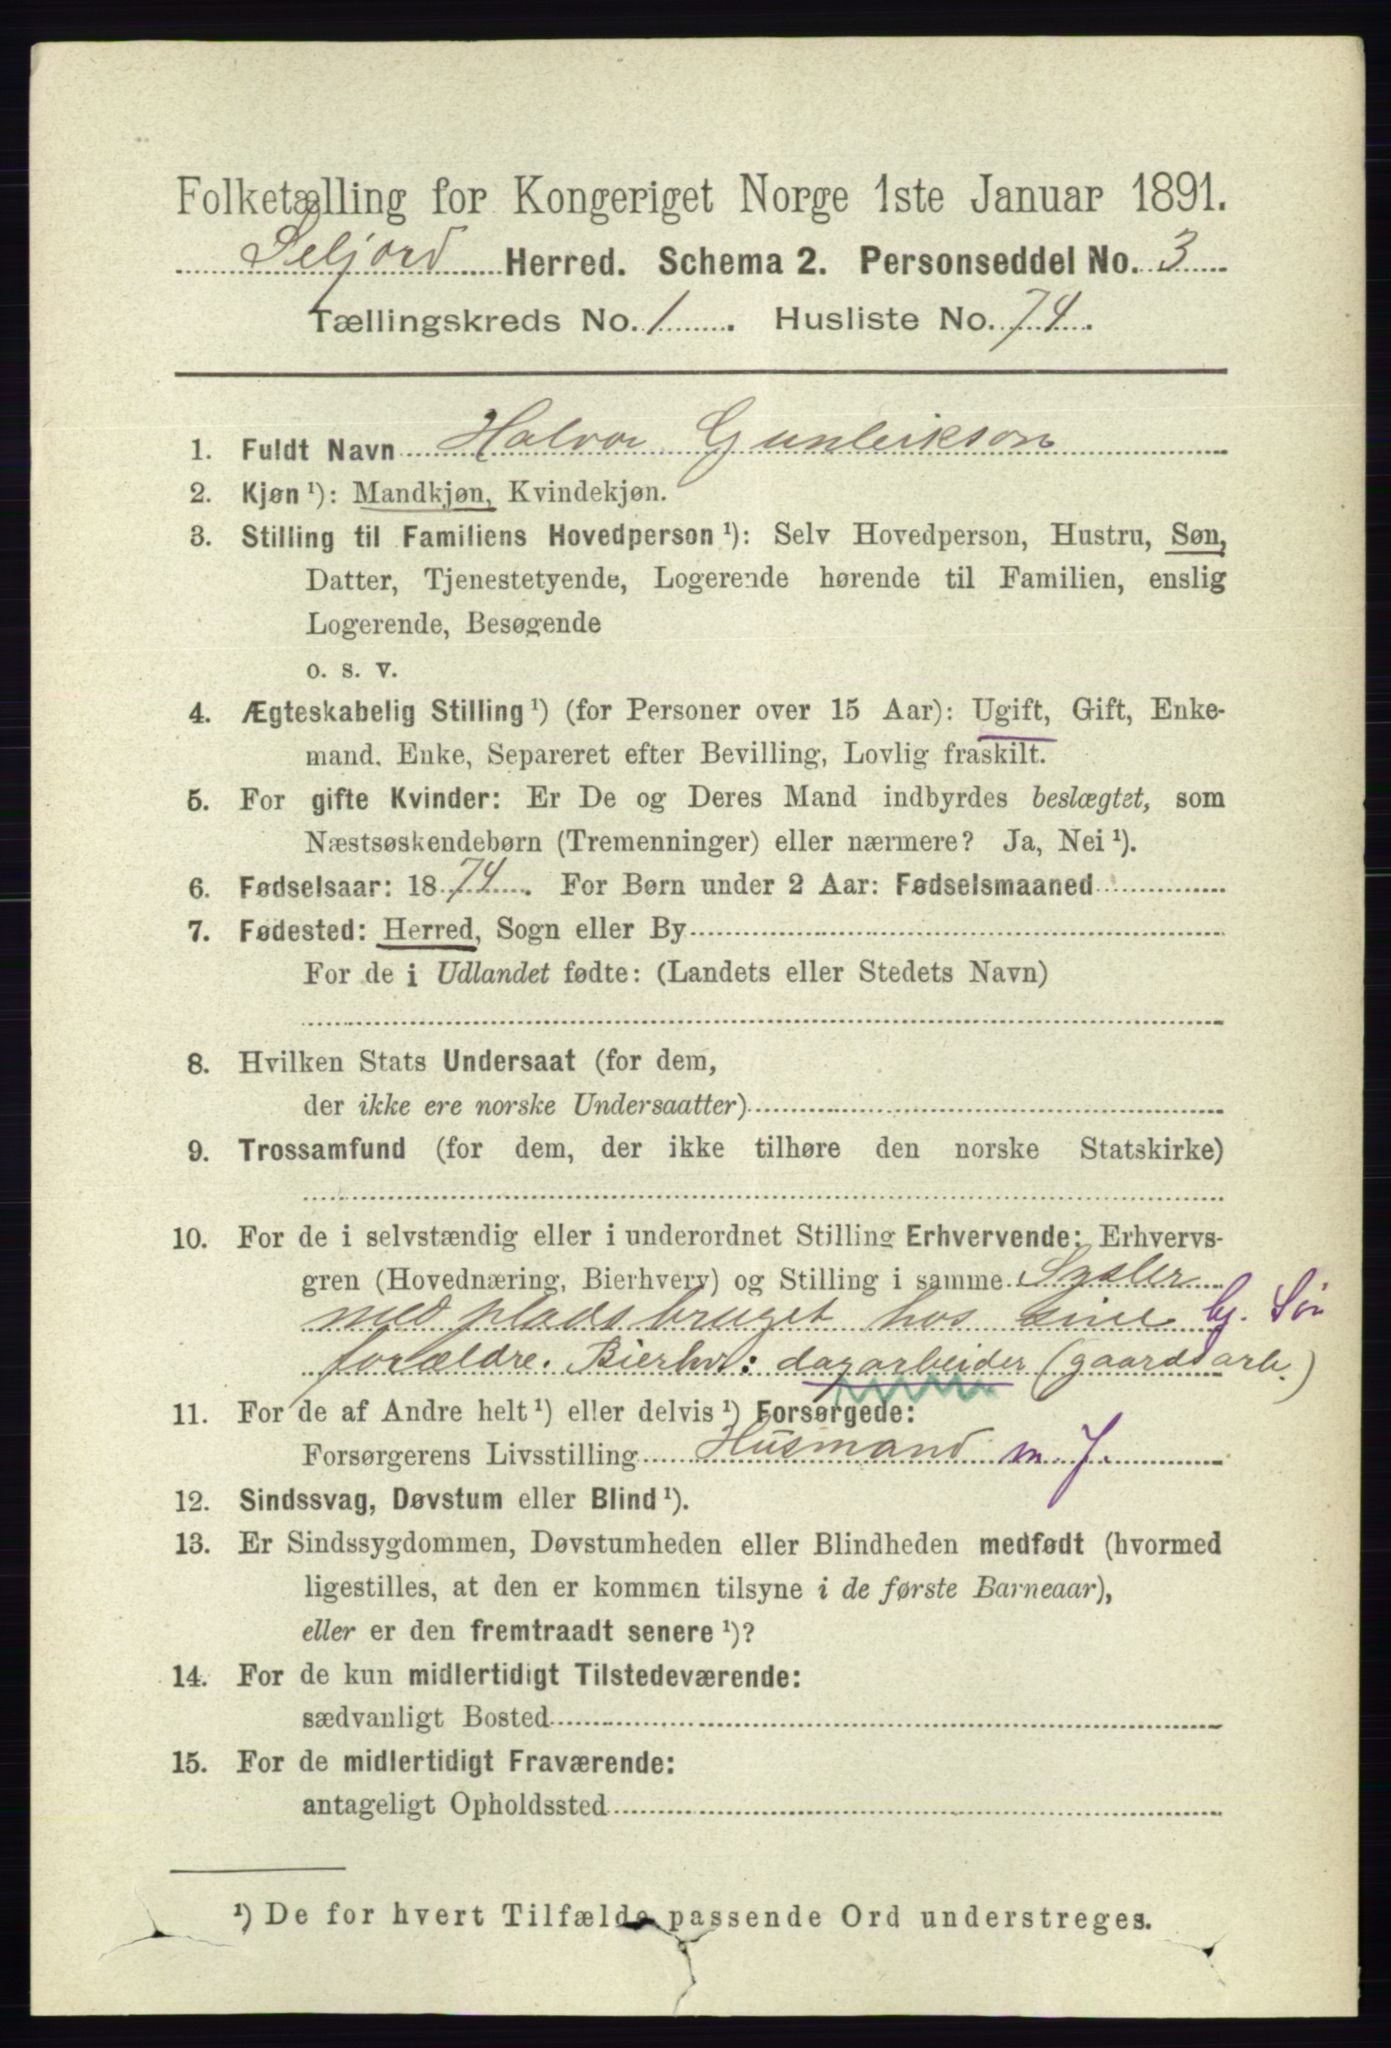 Folketælling for Kongeriget Norge 1ste Januar 1891.
Seljord Herred. Schema 2. Personseddel No. 3
Tællingskreds No. 1. Husliste No. 74.
1. Fuldt Navn Halvor Gunleikson
2. Kjøn ¹): Mandkjøn, Kvindekjøn.
3. Stilling til Familiens Hovedperson ¹): Selv Hovedperson, Hustru, Søn,
Datter, Tjenestetyende, Logerende hørende til Familien, enslig
Logerende, Besøgende
o. s. v.
4. Ægteskabelig Stilling ¹) (for Personer over 15 Aar): Ugift, Gift, Enke-
mand, Enke, Separeret efter Bevilling, Lovlig fraskilt.
5. For gifte Kvinder: Er De og Deres Mand indbyrdes beslægtet, som
Næstsøskendebørn (Tremenninger) eller nærmere? Ja, Nei ¹).
6. Fødselsaar: 1874. For Børn under 2 Aar: Fødselsmaaned
7. Fødested: Herred, Sogn eller By
For de i Udlandet fødte: (Landets eller Stedets Navn)
8. Hvilken Stats Undersaat (for dem,
der ikke ere norske Undersaatter)
9. Trossamfund (for dem, der ikke tilhøre den norske Statskirke)
10. For de i selvstændig eller i underordnet Stilling Erhvervende: Erhvervs-
gren (Hovednæring, Bierhverv) og Stilling i samme Sysler
med pladsbruget hos sine G. Søn
forældre. Bierhv: dagarbeider (gaardsarb.)
11. For de af Andre helt ¹) eller delvis ¹) Forsørgede:
Forsørgerens Livsstilling Husmand m. J.
12. Sindssvag, Døvstum eller Blind ¹).
13. Er Sindssygdommen, Døvstumheden eller Blindheden medfødt (hvormed
ligestilles, at den er kommen tilsyne i de første Barneaar),
eller er den fremtraadt senere ¹)?
14. For de kun midlertidigt Tilstedeværende:
sædvanligt Bosted
15. For de midlertidigt Fraværende:
antageligt Opholdssted
¹) De for hvert Tilfælde passende Ord understreges.